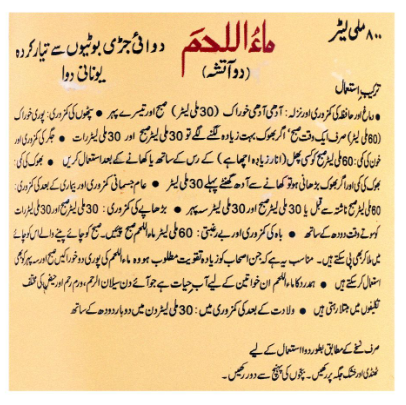 ۸۰۰ ملی لیٹر
ماءُ اللحم
(دو آتشہ)
دوائی جڑی بوٹیوں سے تیار کردہ
یونانی دوا
ترکیبِ استعمال
● دماغ اور حافظہ کی کمزوری اور نزلہ: آدھی آدھی خوراک (30 ملی لیٹر) صبح اور تیسرے پہر ● پٹھوں کی کمزوری: پوری خوراک
(60 ملی لیٹر) صرف ایک وقت صبح' اگر بھوک بہت زیادہ لگنے لگے تو 30 ملی لیٹر صبح اور 30 ملی لیٹر رات ● جگر کی کمزوری اور
خون کی کمی: 60 ملی لیٹر صبح کو کسی پھل (انار زیادہ اچھا ہے) کے رس کے ساتھ یا کھانے کے بعد استعمال کریں ● بھوک کی کمی:
بھوک کی کمی اور اگر بھوک بڑھانی ہو تو کھانے سے آدھ گھنٹے پہلے 30 ملی لیٹر ● عام جسمانی کمزوری اور بیماری کے بعد کی کمزوری:
60 ملی لیٹر صبح ناشتہ سے قبل یا 30 ملی لیٹر صبح اور 30 ملی لیٹر سہ پہر ● بڑھاپے کی کمزوری: 30 ملی لیٹر صبح اور 30 ملی لیٹر رات
کو سوتے وقت دودھ کے ساتھ ● باہ کی کمزوری اور بے رغبتی: 60 ملی لیٹر ماءاللحم صبح پئیں۔ صبح کو چائے پینے والے اس کو چائے
میں ملا کر بھی پی سکتے ہیں۔ مناسب یہ ہے کہ جن اصحاب کو زیادہ تقویت مطلوب ہو وہ ماءاللحم کی پوری دو خوراکیں صبح اور سہ پہر کو بھی
استعمال کر سکتے ہیں ● ہمدرد کا ماءاللحم ان خواتین کے لیے آبِ حیات ہے جو آئے دن سیلان الرحم، ورم رحم اور حیض کی مختلف
تکلیفوں میں مبتلا رہتی ہیں ● ولادت کے بعد کی کمزوری میں: 30 ملی لیٹر دن میں دو بار دودھ کے ساتھ
صرف نسخے کے مطابق بطور دوا استعمال کے لیے
ٹھنڈی اور خشک جگہ پر رکھیں۔ بچوں کی پہنچ سے دور رکھیں۔